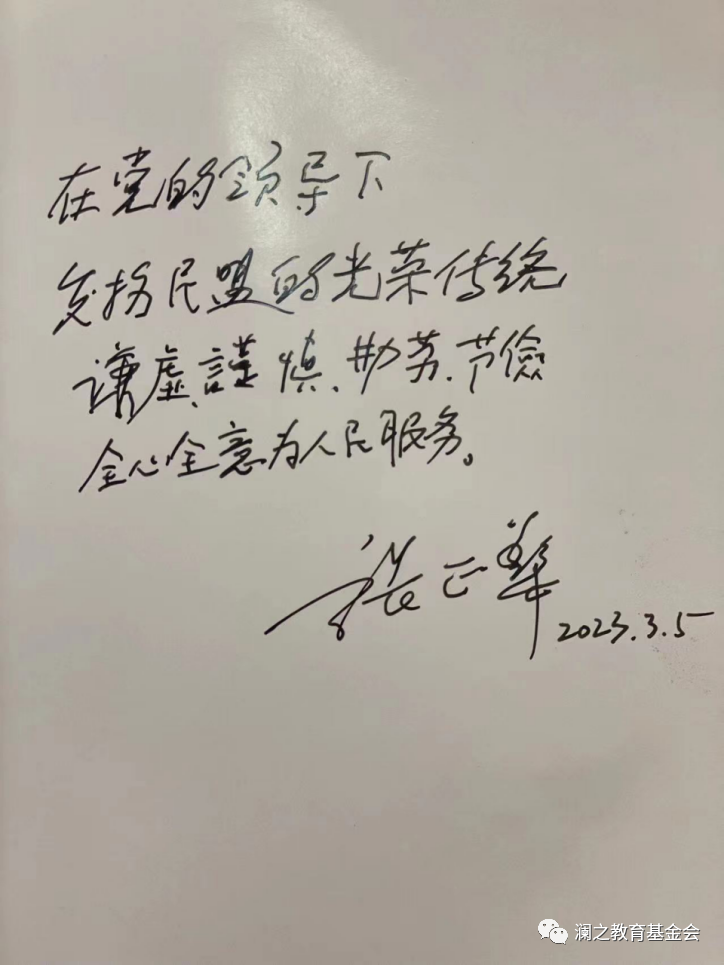 在党的领导下
发扬民盟的光荣传统
谦虚、謹慎、勤劳、节儉
全心全意为人民服务。
张正華 2023.3.5
澜之教育基金会